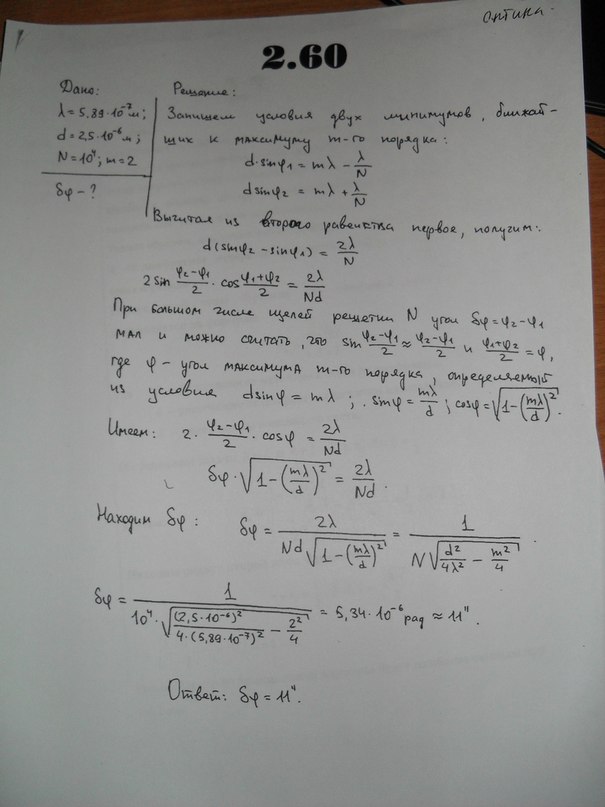 оптика.
2.60
Дано:
λ = 5,89·10⁻⁷ м;
d = 2,5·10⁻⁶ м;
N = 10⁴; m = 2
δφ - ?
Решение:
Запишем условия двух минимумов, ближай-
щих к максимуму m-го порядка:
d·sinφ₁ = mλ - λ/N
dsinφ₂ = mλ + λ/N
Вычитая из второго равенства первое, получим:
d(sinφ₂ - sinφ₁) = 2λ/N
2sin (φ₂-φ₁)/2 · cos (φ₁+φ₂)/2 = 2λ/Nd
При большом числе щелей решетки N угол δφ = φ₂ - φ₁
мал и можно считать, что sin (φ₂-φ₁)/2 ≈ (φ₂-φ₁)/2 и (φ₁+φ₂)/2 = φ,
где φ - угол максимума m-го порядка, определяемый
из условия dsinφ = mλ ; sinφ = mλ/d ; cosφ = √(1-(mλ/d)²).
Имеем: 2· (φ₂-φ₁)/2 · cosφ = 2λ/Nd
δφ·√(1-(mλ/d)²) = 2λ/Nd.
Находим δφ: δφ = 2λ/(Nd√(1-(mλ/d)²)) = 1/(N√(d²/4λ² - m²/4)).
δφ = 1/(10⁴·√((2,5·10⁻⁶)²/(4·(5,89·10⁻⁷)²) - 2²/4)) = 5,34·10⁻⁶ рад ≈ 11".
Ответ: δφ = 11".